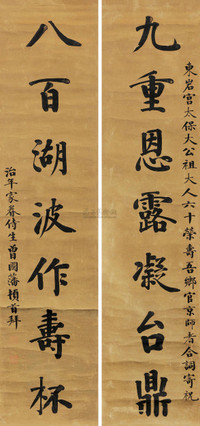 東岩宮太保大公祖大人六十榮壽吾鄉官京師者合詞寄祝
九重恩露凝台鼎
八百湖波作壽杯
治年家眷侍生曾國藩頓首拜